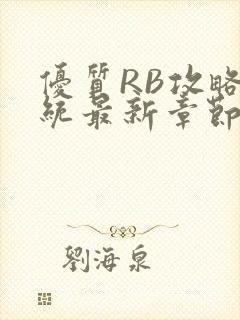 優質RB攻略
統最新章節
劉海泉